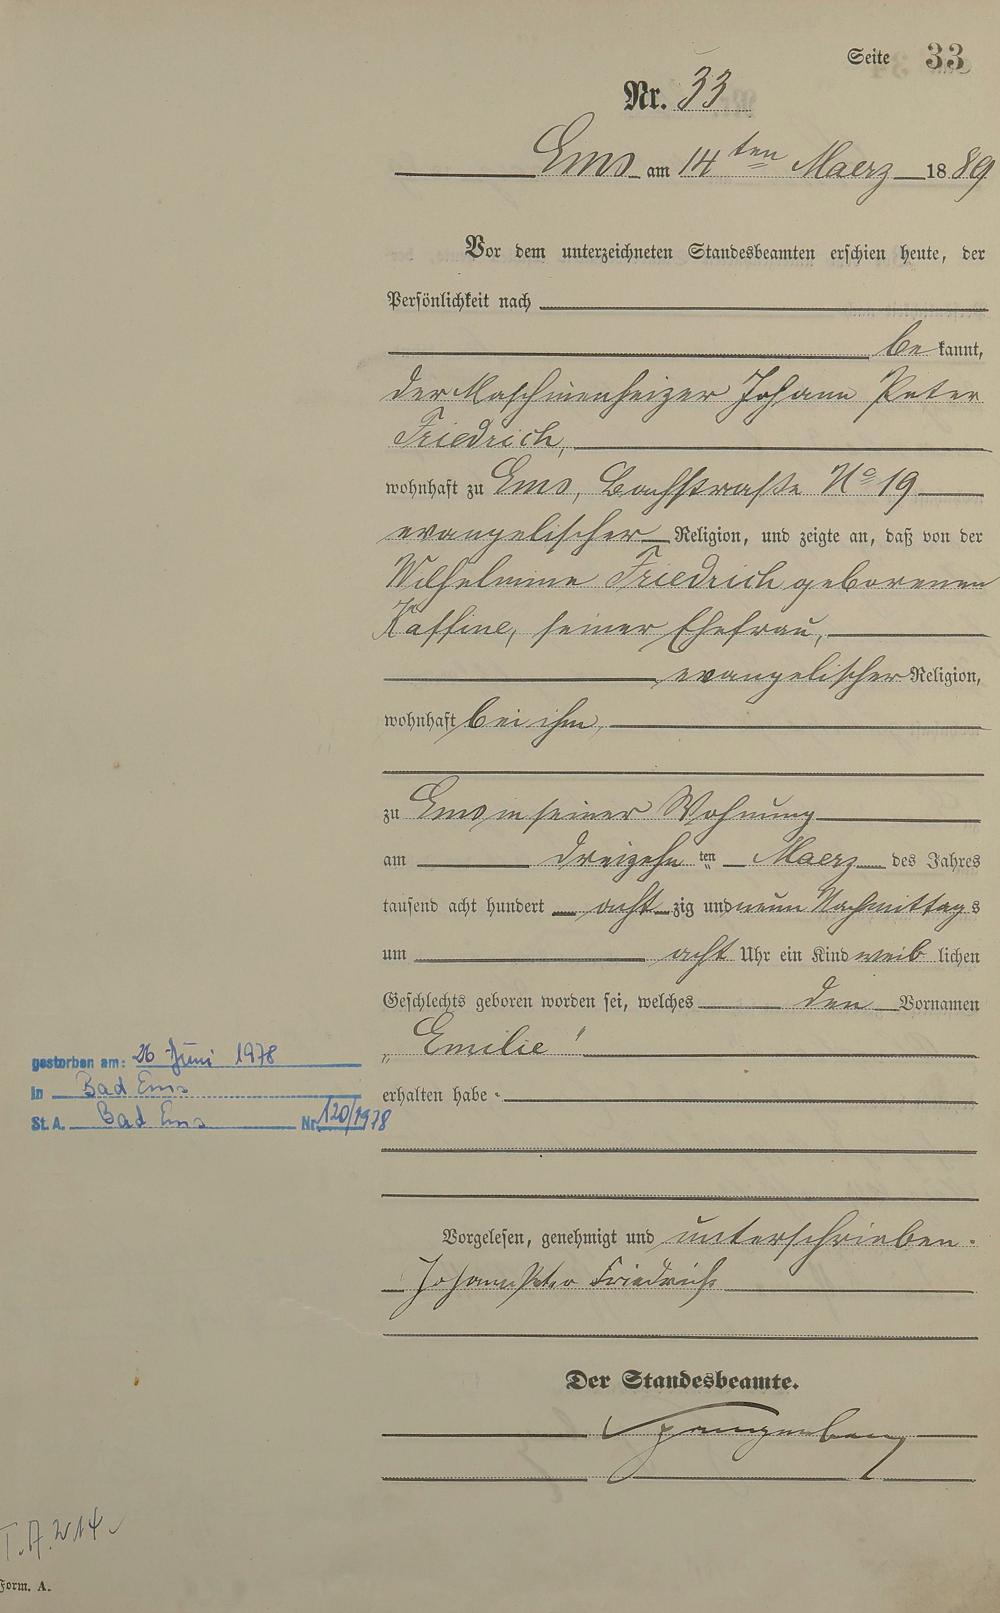 Seite 33
Nr. 33
Ems am 14ten Maerz 1889
Vor dem unterzeichneten Standesbeamten erschien heute, der
Persönlichkeit nach
be kannt,
der Maschinenheizer Johann Peter
Friedrich,
wohnhaft zu Ems, Bachstraße No 19
evangelischer Religion, und zeigte an, daß von der
Wilhelmine Friedrich geborenen
Kaffine, seiner Ehefrau,
evangelischer Religion,
wohnhaft bei ihm,
zu Ems in seiner Wohnung
am dreizehn ten Maerz des Jahres
tausend acht hundert acht zig und neun Nachmittags
um acht Uhr ein Kind weib lichen
Geschlechts geboren worden sei, welches den Vornamen
„Emilie"
erhalten habe.
gestorben am: 26 Juni 1978
in Bad Ems
St. A. Bad Ems Nr. 120/1978
Vorgelesen, genehmigt und unterschrieben.
Johann Peter Friedrich
Der Standesbeamte.
Form. A.